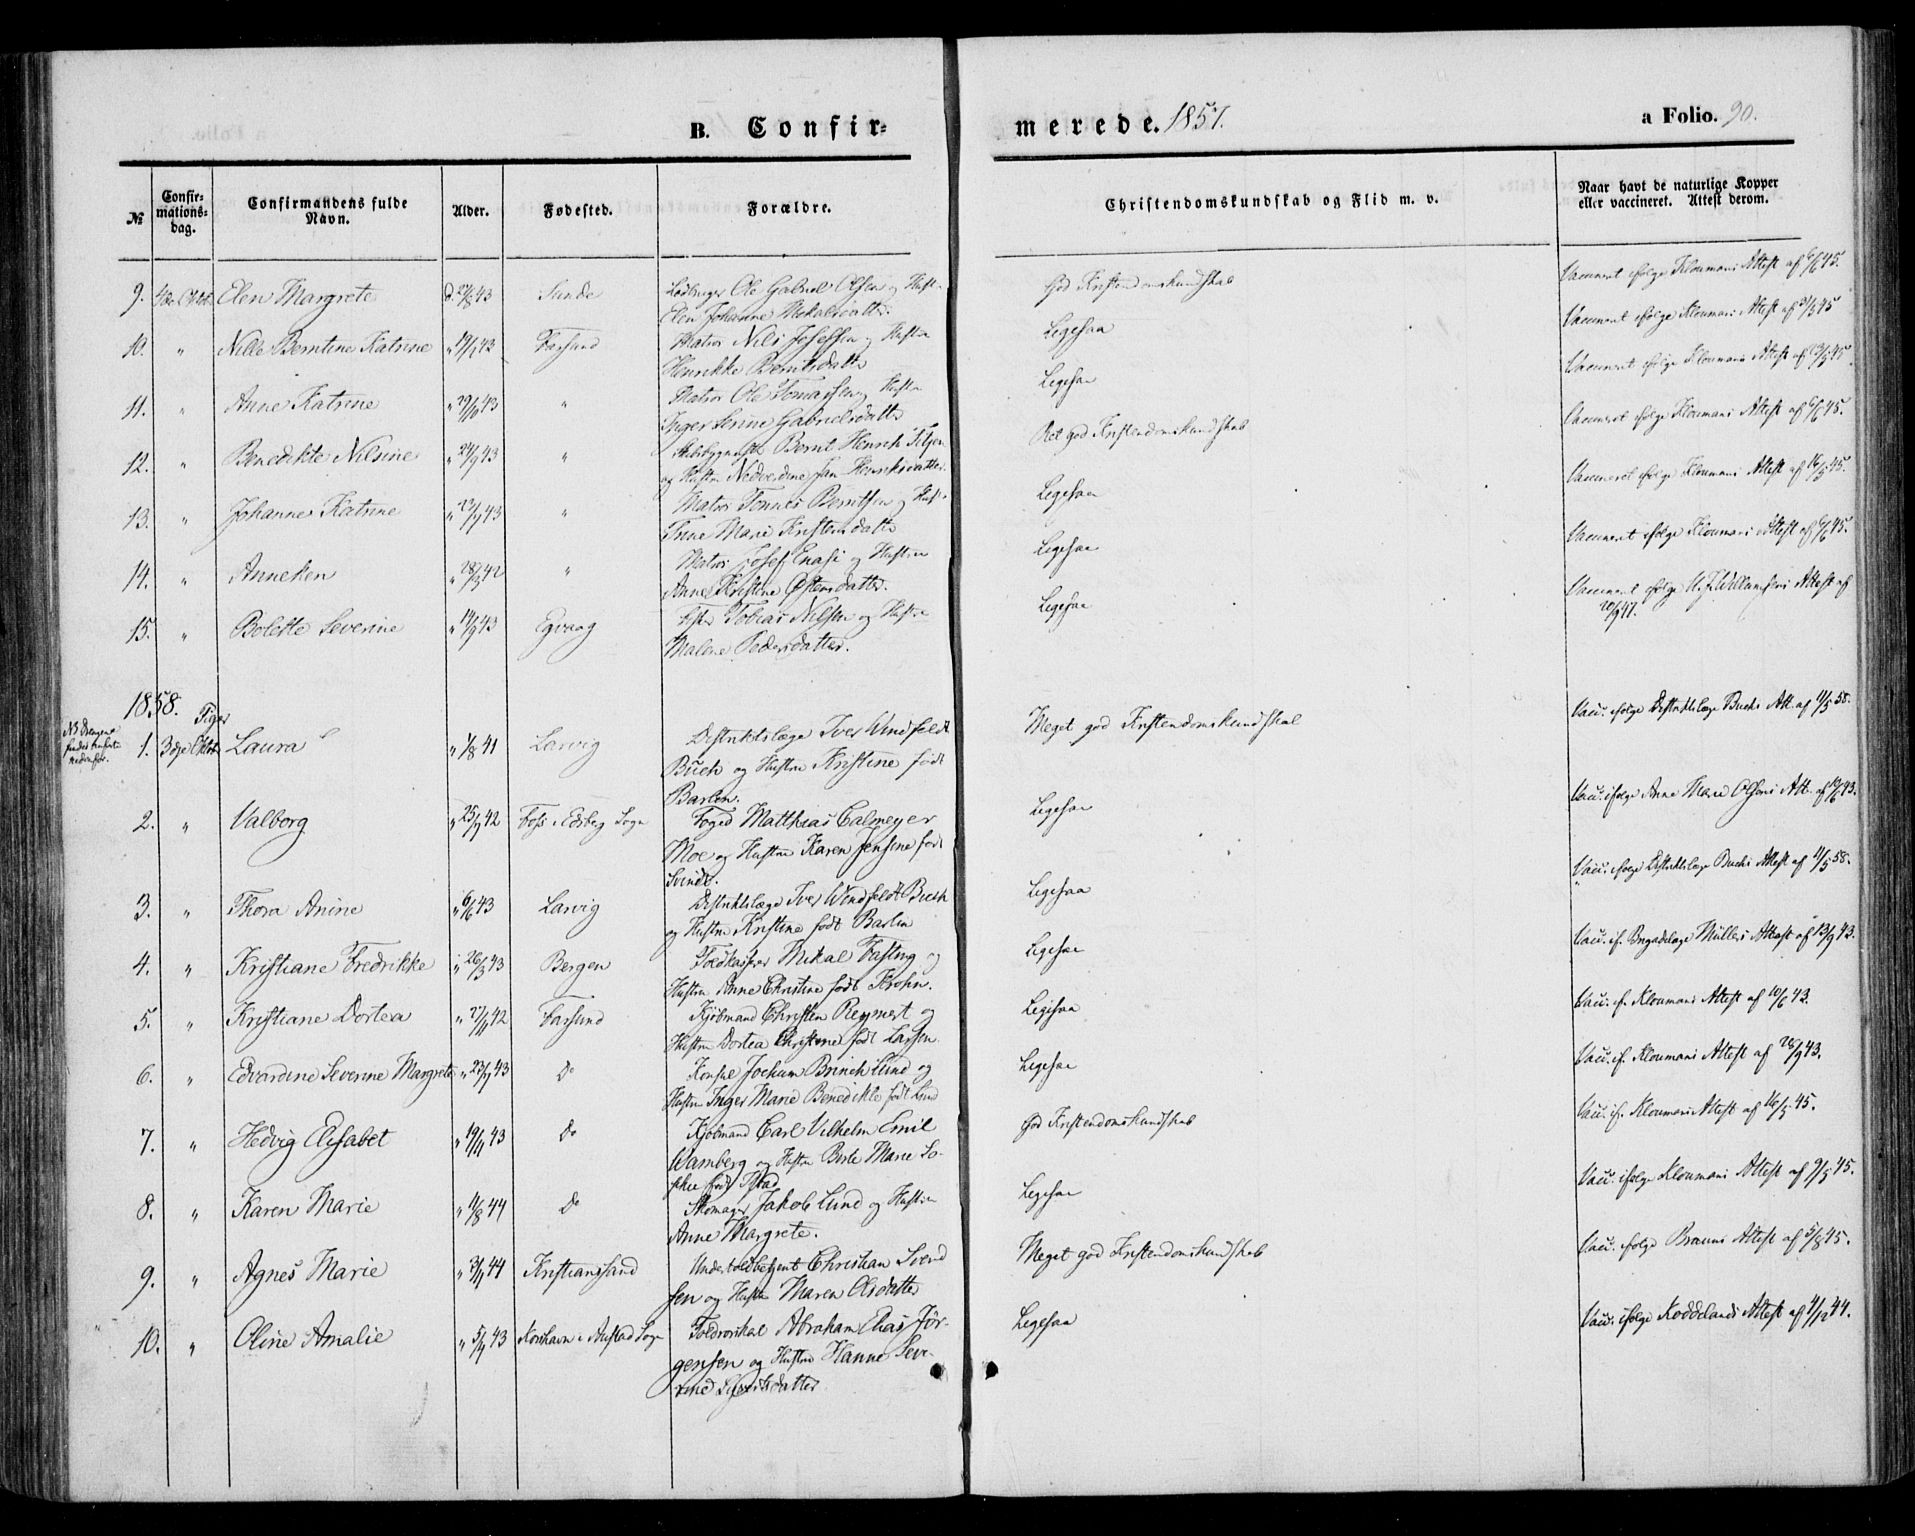 B. Confir-
merede. 1857.
a Folio. 90.
№
Confir-
mations-
dag.
Confirmandens fulde
Navn.
Alder.
Fødested.
Forældre.
Christendomskundskab og Flid m. v.
Naar havt de naturlige Kopper
eller vaccineret. Attest derom.
9. 4de Oktbr Elen Margrete d. 27/8 43 Sunde Ole Gabriel Olsen og Hustru
Elen Johanne Mekalsdatter.
God Kristendomskundskab
Vaccineret ifølge Kloumans Attest af 6/6 45.
10. " Nille Berntine Katrine " 19/1 43 Farsund Matros Nils Josefsen og Hustru
Henrikke Berntsdatter
Ligesaa
Vaccineret ifølge Kloumans Attest af 31/5 45
11. " Anne Katrine " 29/10 43 " Matros Ole Tomassen og Hustru
Inger Serine Gabrielsdatter
Ligesaa
Vaccineret ifølge Kloumans Attest af 23/5 45.
12. " Benedikte Nilsine " 24/9 43 " Skibsbygmester Bernt Henrik
og Hustru
Ret god Kristendomskundskab
Vaccineret ifølge Kloumans Attest af 6/6 45.
13. " Johanne Katrine " 23/9 43 " Matros Tønnes Berntsen og Hustru
Anne Marie Kristensdatter
Ligesaa
Vaccineret ifølge Kloumans Attest af 16/5 45.
14. " Anneken " 28/3 42 " Matros Josef Enasi og Hustru
Anne Kristine Østensdatter.
Ligesaa
Vaccineret ifølge Kloumans Attest af 6/6 45.
15. " Bolette Severine " 14/9 43 Egvaag Tobias Nilsen og Hustru
Malene Pedersdatter.
Ligesaa
Vaccineret ifølge Willumsens Attest af
20/9 47.
1858.
NB Drengene
findes anført
nedenfor.
1. 3die Oktbr Laura " 1/8 41 Larvig Distriktslæge Iver Windfeldt
Buch og Hustru Kristine født
Barlin.
Meget god Kristendomskundskab
Vacc. ifølge Distriktslæge Buchs Att. af 11/5 58.
2. " Valborg " 25/9 42 Foss i Edsberg Sogn Foged Matthias Calmeyer
Moe og Hustru Karen Jensine født
Svinde.
Ligesaa
Vacc. ifølge Anne Marie Olsens Att. af 10/6 43.
3. " Thora Anine " 6/6 43 Larvig Distriktslæge Iver Windfeldt Buch
og Hustru Kristine født Barlin
Ligesaa
Vacc. ifølge Distriktslæge Buchs Attest af 11/5 58.
4. " Kristiane Fredrikke " 26/3 43 Bergen Toldkasserer Mikal Fasting og
Hustru Anne Christine født Krohn.
Ligesaa
Vacc. if. Brigadelæge Müllers Attest af 13/9 43.
5. " Kristiane Dortea " 27/11 42 Farsund Kjøbmand Christen Reymert og
Hustru Dortea Christine født Larsen
Ligesaa
Vacc. if. Kloumans Attest af 10/6 43.
6. " Edvardine Severine Margrete " 23/1 43 Do Konsul Jochum Brinch Lund og
Hustru Inger Marie Benedikte født Lund
Ligesaa
Vacc. if. Kloumans Attest af 28/9 43.
7. " Hedvig Elisabet " 19/11 43 Do Kjøbmand Carl Vilhelm Emil
Wamberg og Hustru Birte Marie So-
phie født
God Kristendomskundskab
Vacc. if. Kloumans Attest af 16/5 45.
8. " Karen Marie " 11/8 44 Do Skomager Jakob Lund og Hustru
Anne Margrete.
Ligesaa
Vacc. ifølge Kloumans Attest af 9/5 45.
9. " Agnes Marie " 3/1 44 Kristianssand Undertoldbetjent Christian Svend
sen og Hustru Maren Olsdatter
Meget god Kristendomskundskab
Vacc. ifølge Brauns Attest af 5/8 45.
10. " Oline Amalie " 5/1 43 Korshavn i Austad Sogn Toldroerskal Abraham Elias Jør-
gensen og Hustru Hanne Seve-
rine Sivertsdatter.
Ligesaa
Vacc. ifølge Koddelands Attest af 4/12 44.